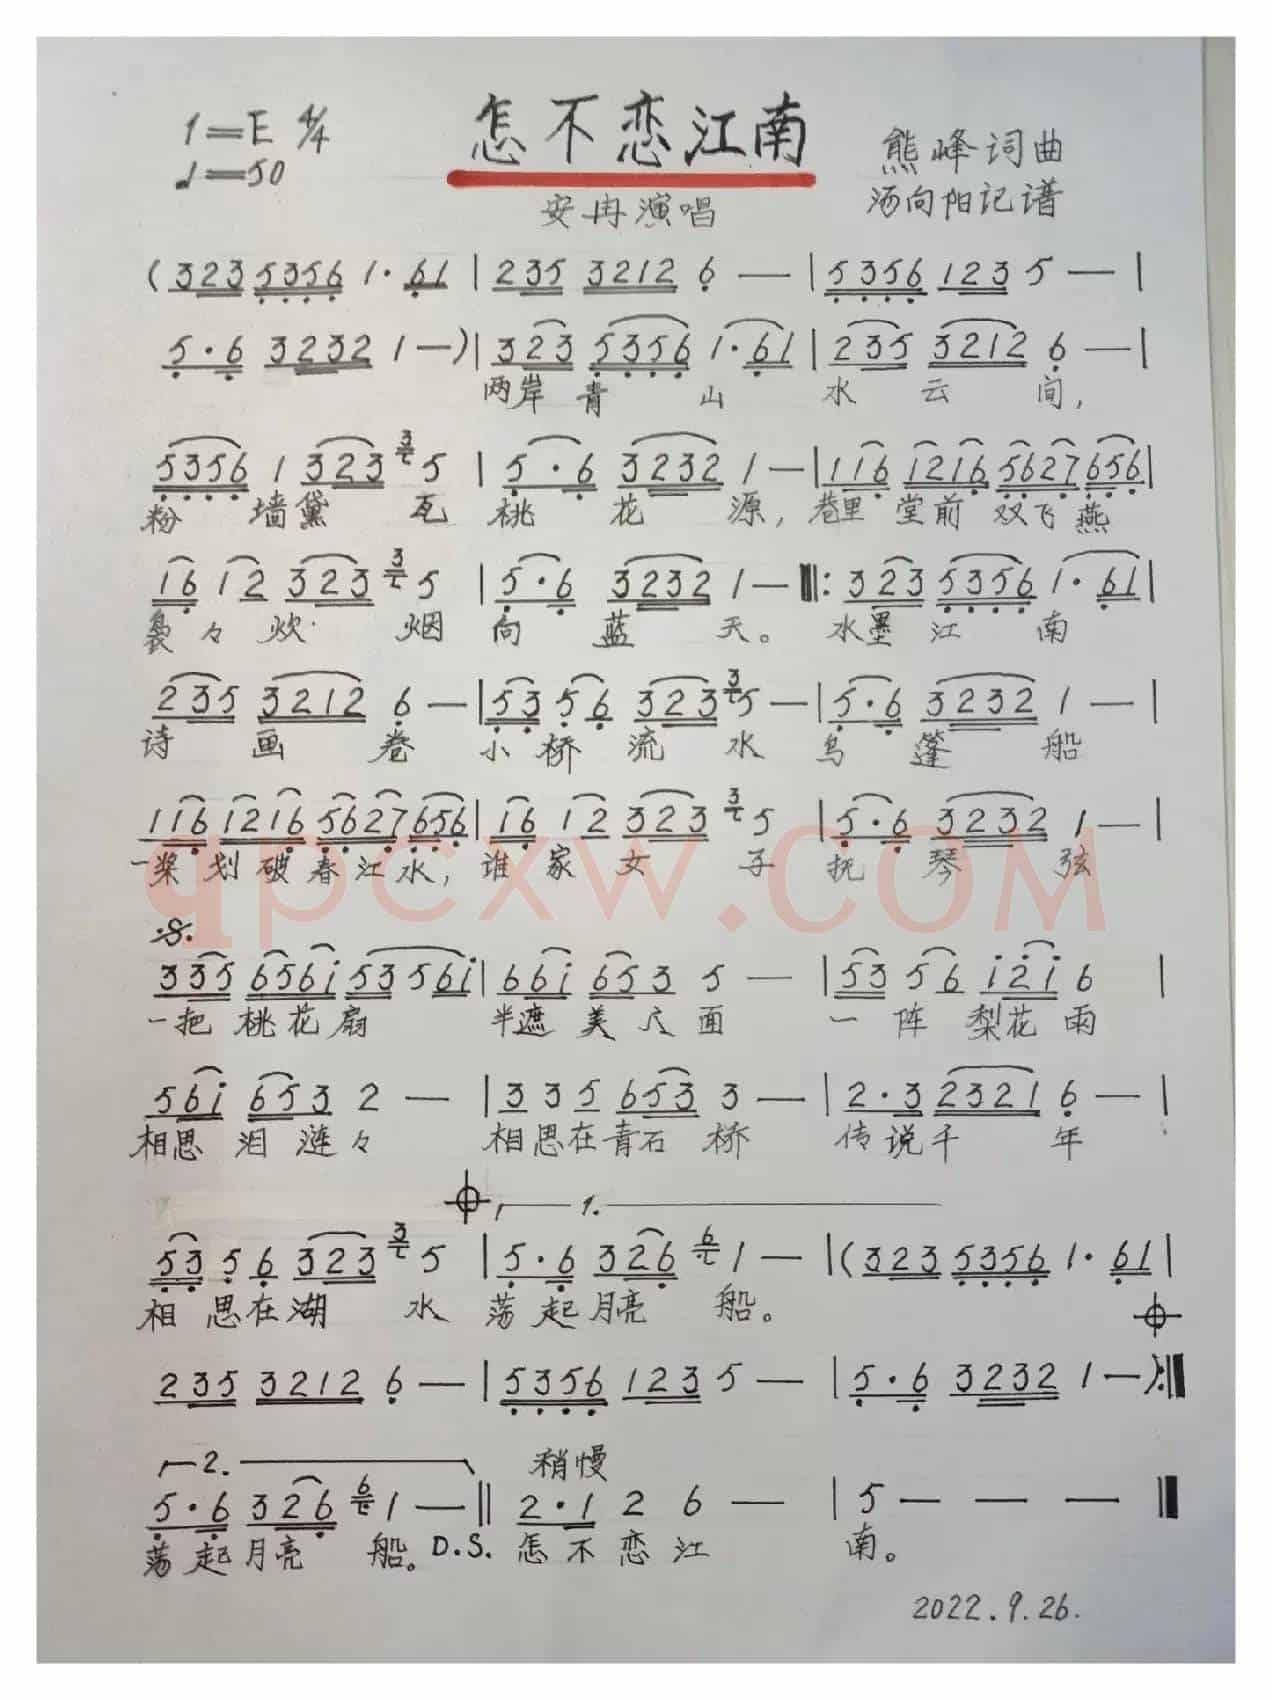 1=E 4/4
怎不恋江南
♩=50
熊峰词曲
安冉演唱
汤向阳记谱
(323 5356 1·61 | 235 3212 6 — | 5356 123 5 — |
5·6 3232 1 —) | 323 5356 1·61 | 235 3212 6 — |
两岸青山 水云间,
5356 1 323 3 5 | 5·6 3232 1 — | 116 1216 5627 656 |
粉墙黛瓦 桃花源, 巷里堂前双飞燕
16 12 323 3 5 | 5·6 3232 1 — ‖: 323 5356 1·61 |
袅々炊烟 向蓝天。 水墨江南
235 3212 6 — | 53 56 323 3 5 — | 5·6 3232 1 — |
诗画卷 小桥流水 乌篷船
116 1216 5627 656 | 16 12 323 3 5 | 5·6 3232 1 — |
一桨划破春江水, 谁家女子 抚琴弦
335 6561 53561 | 661 653 5 — | 53 56 121 6 |
一把桃花扇 半遮美人面 一阵梨花雨
561 653 2 — | 3 3 5 653 3 — | 2·3 2321 6 — |
相思泪涟々 相思在青石桥 传说千年
1.
53 5 6 323 3 5 | 5·6 326 6 1 — | (323 5356 1·61 |
相思在湖水 荡起月亮船。
235 3212 6 — | 5356 123 5 — | 5·6 3232 1 —) :‖
2. 稍慢
5·6 326 6 1 — ‖ 2·1 2 6 — | 5 — — — ‖
荡起月亮船。 D.S. 怎不恋江南。
2022.9.26.
qpcxw.COM